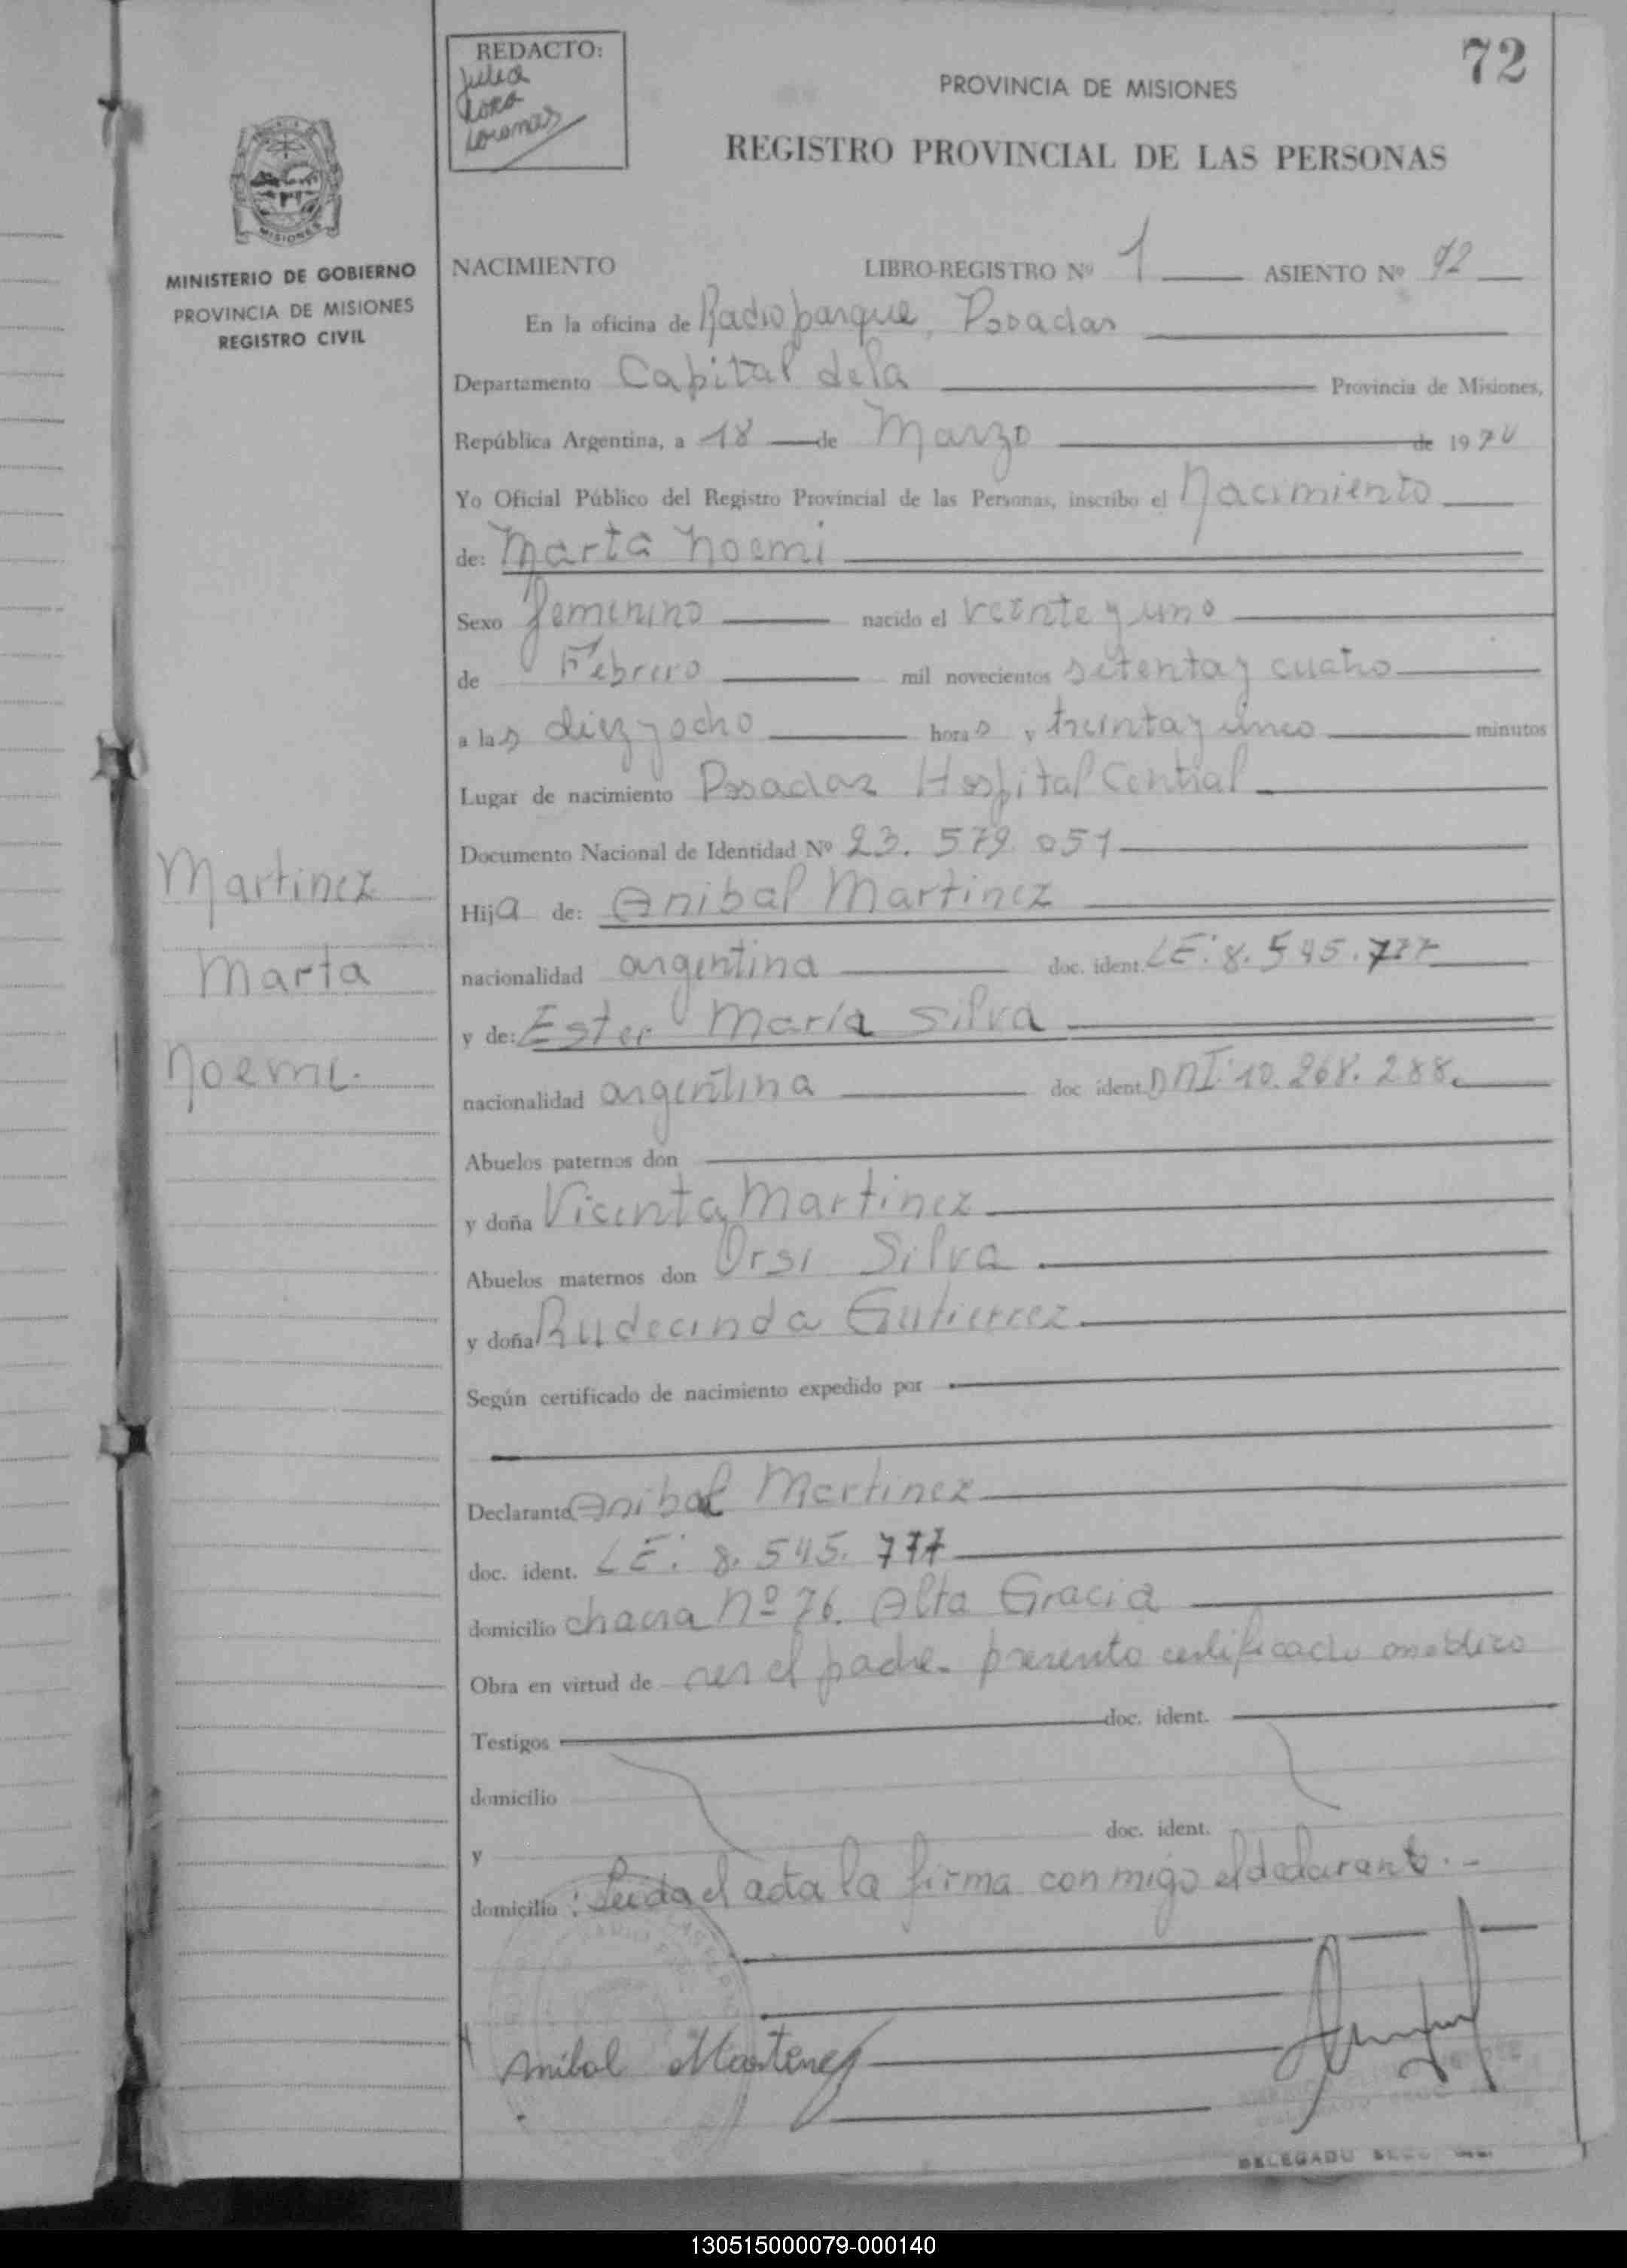 REDACTO:
Julia
72
PROVINCIA DE MISIONES
REGISTRO PROVINCIAL DE LAS PERSONAS
MISIONES
MINISTERIO DE GOBIERNO
PROVINCIA DE MISIONES
REGISTRO CIVIL
NACIMIENTO LIBRO-REGISTRO Nº 1 ASIENTO Nº 72
En la oficina de Radioparque, Posadas
Departamento Capital de la Provincia de Misiones,
República Argentina, a 18 de Marzo de 1974
Yo Oficial Público del Registro Provincial de las Personas, inscribo el Nacimiento
de: Marta Noemi
Sexo femenino nacido el veinte y uno
de Febrero mil novecientos setenta y cuatro
a las diez y ocho horas y treinta y cinco minutos
Lugar de nacimiento Posadas Hospital Central
Documento Nacional de Identidad Nº 23.579.051
Martinez
Hija de: Anibal Martinez
Marta
nacionalidad argentina doc. ident. LE: 8.545.777
y de: Ester María Silva
Noemi.
nacionalidad argentina doc ident. DNI: 10.268.288.
Abuelos paternos don
y doña Vicenta Martinez
Abuelos maternos don Orsi Silva
y doña Rudecinda Gutierrez
Según certificado de nacimiento expedido por
Declarante Anibal Martinez
doc. ident. LE: 8.545.777
domicilio chacra Nº 76. Alta Gracia
Obra en virtud de ser el padre. presento certificado medico
Testigos doc. ident.
domicilio
y doc. ident.
domicilio : Leida el acta la firma conmigo el declarante.-
Anibal Martinez
DELEGADO
130515000079-000140